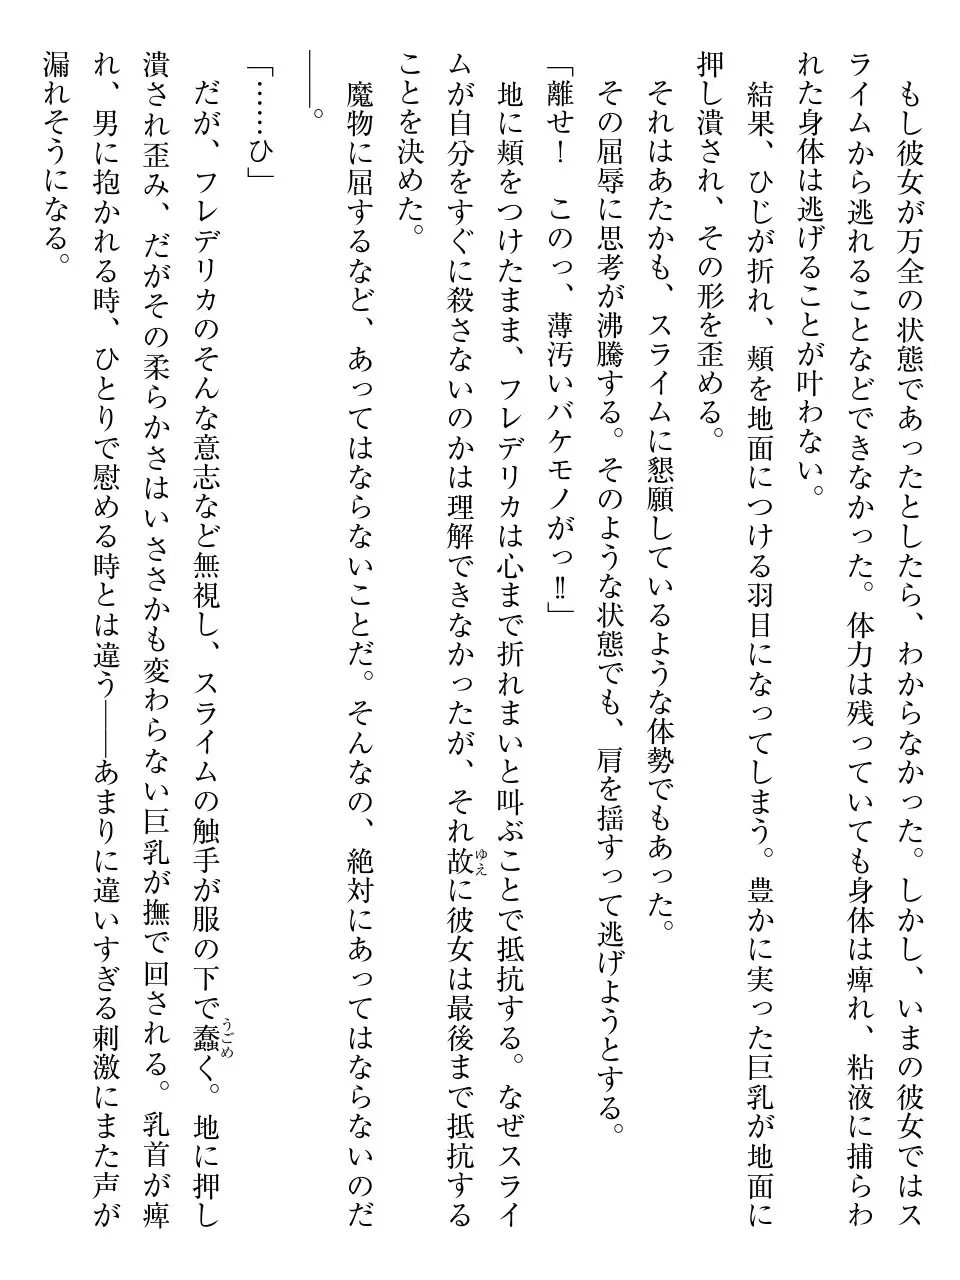 もし彼女が万全の状態であったとしたら、わからなかった。しかし、いまの彼女ではス
ライムから逃れることなどできなかった。体力は残っていても身体は痺れ、粘液に捕らわ
れた身体は逃げることが叶わない。
結果、ひじが折れ、頬を地面につける羽目になってしまう。豊かに実った巨乳が地面に
押し潰され、その形を歪める。
それはあたかも、スライムに懇願しているような体勢でもあった。
その屈辱に思考が沸騰する。そのような状態でも、肩を揺すって逃げようとする。
「離せ！　このっ、薄汚いバケモノがっ‼」
地に頬をつけたまま、フレデリカは心まで折れまいと叫ぶことで抵抗する。なぜスライ
ムが自分をすぐに殺さないのかは理解できなかったが、それ故ゆえに彼女は最後まで抵抗する
ことを決めた。
魔物に屈するなど、あってはならないことだ。そんなの、絶対にあってはならないのだ
――。
「……ひ」
だが、フレデリカのそんな意志など無視し、スライムの触手が服の下で蠢うごめく。地に押し
潰され歪み、だがその柔らかさはいささかも変わらない巨乳が撫で回される。乳首が痺
れ、男に抱かれる時、ひとりで慰める時とは違う――あまりに違いすぎる刺激にまた声が
漏れそうになる。